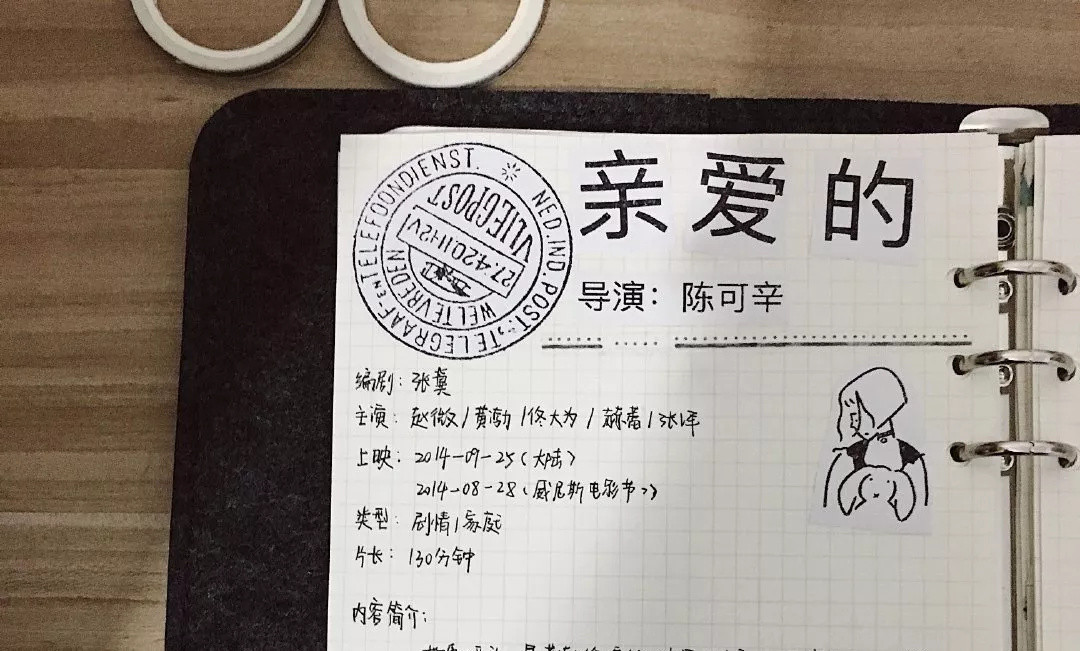 亲爱的
导演：陈可辛
NED.IND.POST-,TELEGRAAF-EN TELEFOONDIENST.
WELTEVREDEN
27.4.20.11-12V1
VLIEGPOST
编剧：张冀
主演：赵微/黄渤/佟大为/郝蕾/张译
上映：2014-09-25(大陆)
2014-08-28(威尼斯电影节)
类型：剧情/家庭
片长：130分钟
内容简介：